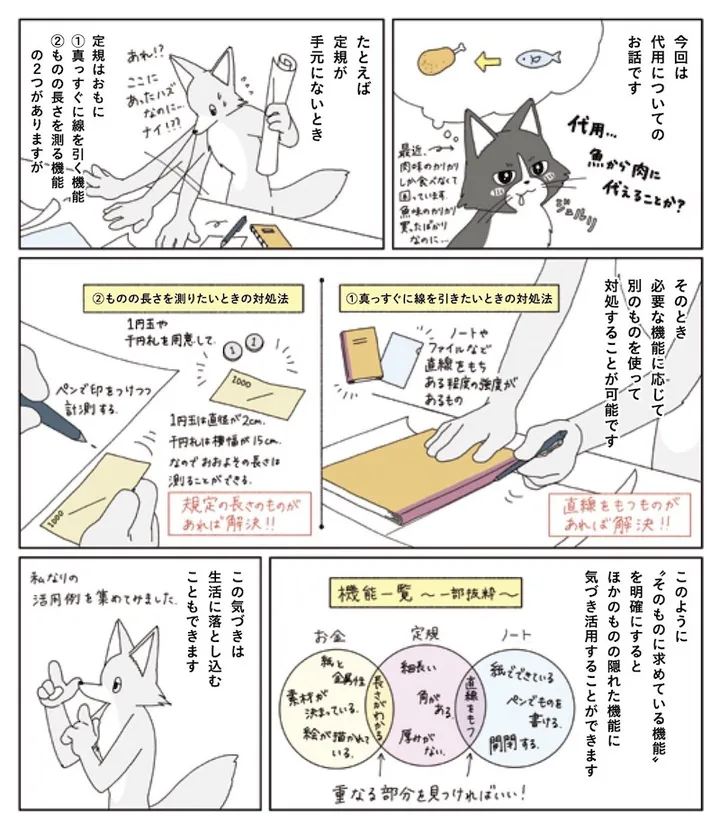 今回は
代用についての
お話です
代用…
魚から肉に
代えることか?
ジュルリ
最近、
肉味のカリカリ
しか食べなくて
困っています。
魚味のカリカリ
買ったばかり
なのに…
たとえば
定規が
手元にないとき
あれ!?
ここに
あったハズ
なのに…
ナイ!??
定規はおもに
①真っすぐに線を引く機能
②ものの長さを測る機能
の2つがありますが
そのとき
必要な機能に応じて
別のものを使って
対処することが可能です
①真っすぐに線を引きたいときの対処法
ノートや
ファイルなど
直線をもち
ある程度の強度が
あるもの
直線をもつものが
あれば解決!!
②ものの長さを測りたいときの対処法
1円玉や
千円札を用意して、
1
1
1000
ペンで印をつけつつ
計測する。
1円玉は直径が2cm。
千円札は横幅が15cm。
なのでおおよその長さは
測ることができる。
1000
規定の長さのものが
あれば解決!!
このように
“そのものに求めている機能”
を明確にすると
ほかのものの隠れた機能に
気づき活用することができます
機能一覧 〜一部抜粋〜
お金
定規
ノート
紙と
金属性
素材が
決まっている。
絵が描かれて
いる。
長さがわかる
細長い
角が
ある。
厚みが
ない。
直線をもつ
紙でできている
ペンでものを
書ける。
開閉する。
重なる部分を見つければいい!
この気づきは
生活に落とし込む
こともできます
私なりの
活用例を集めてみました。